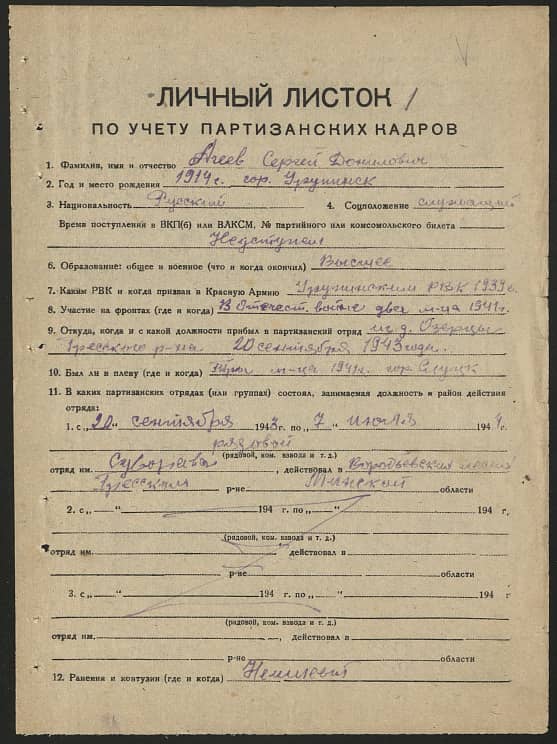 ЛИЧНЫЙ ЛИСТОК 1
ПО УЧЕТУ ПАРТИЗАНСКИХ КАДРОВ
1. Фамилия, имя и отчество Агеев Сергей Данилович
2. Год и место рождения 1914 г. гор. Урупинск
3. Национальность Русский 4. Соцположение служащий
Время поступления в ВКП(б) или ВЛКСМ, № партийного или комсомольского билета
Не вступал
6. Образование: общее и военное (что и когда окончил) Высшее
7. Каким РВК и когда призван в Красную Армию Урупинским РВК 1939 г.
8. Участие на фронтах (где и когда) В Отечест. войне два м-ца 1941 г.
9. Откуда, когда и с какой должности прибыл в партизанский отряд из д. Озерцы
Гресского р-на 20 сентября 1943 года.
10. Был ли в плену (где и когда) Три м-ца 1941 г. гор. Слуцк
11. В каких партизанских отрядах (или группах) состоял, занимаемая должность и район действия
отряда:
1. с „20 сентября 1943 г. по „7" июля 1944 г.
рядовой
(рядовой, ком. взвода и т. д.)
отряд им. Суворова, действовал в Воробьевских лесах
Гресском р-не Минской области
2. с „ " 194 г. по „ " 194 г,
(рядовой, ком. взвода и т. д.)
отряд им. действовал в
р-не области
3. с „ " 194 г. по „ " 194 г
(рядовой, ком. взвода и т. д.)
отряд им. , действовал в
р-не области
12. Ранения и контузии (где и когда) Не имеет